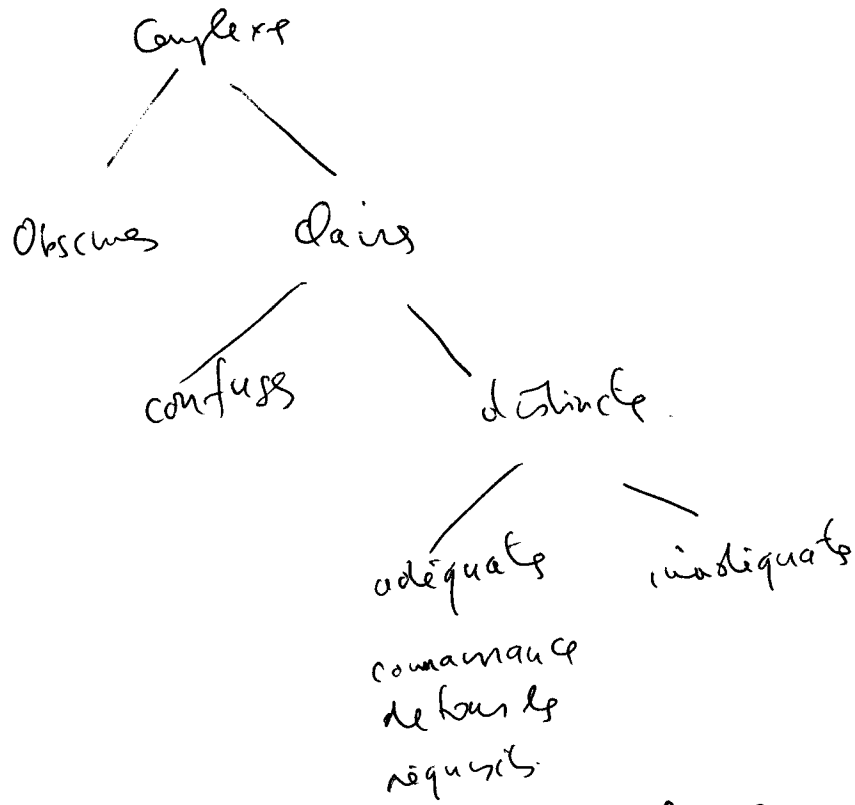 Complexe
Obscures Claires
confuses distincte.
adéquate inadéquate
connaissance
de tous les
réquisits.